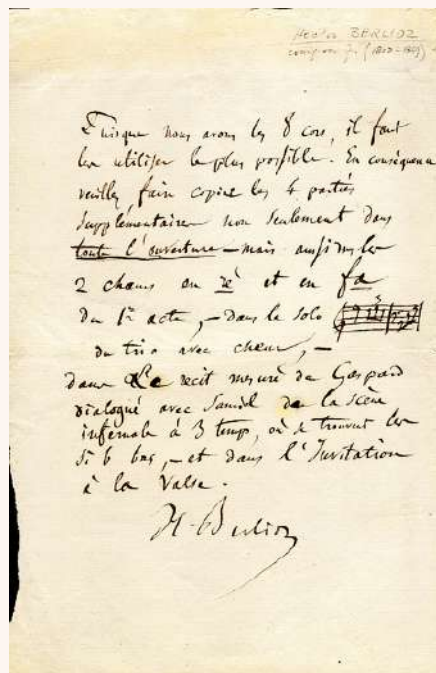 Hector BERLIOZ
compositeur fr. (1803-1869)
Puisque nous avons les 8 cors, il faut
les utiliser le plus possible. En conséquence
veuillez faire copier les 4 parties
supplémentaires non seulement dans
toute l'ouverture – mais aussi ds les
2 chœurs en ré et en fa
du 1er acte, – dans le solo
du trio avec chœur, –
dans le récit mesuré de Gaspard
dialogué avec Samiel de la scène
infernale à 3 temps, où se trouvent les
si b bas, – et dans l'Invitation
à la Valse.
H. Berlioz